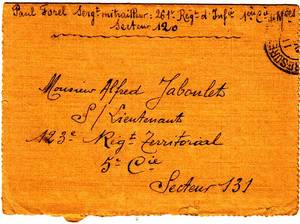 Paul Forel Sergt mitrailleur: 261e Régt d'Infie 1ère Cie de Mses
Secteur 120
Monsieur Alfred Jaboulets
S/Lieutenant
123e Régt Territorial
5e Cie
Secteur 131
TRESOR E